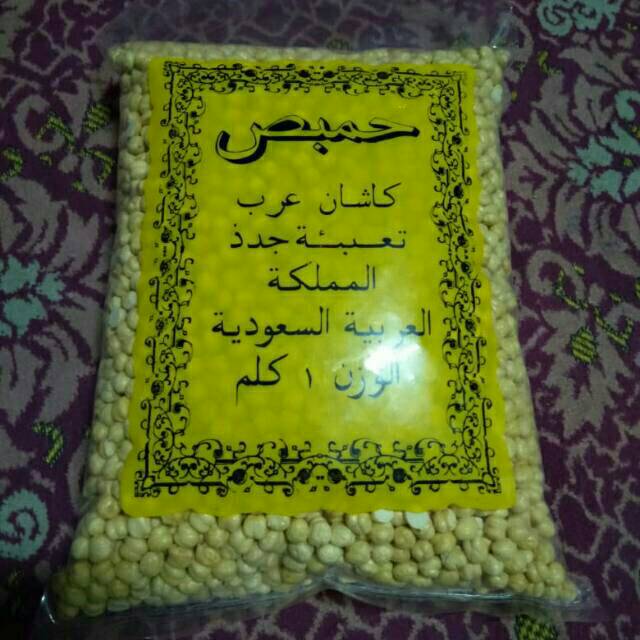 حمبص
كاشان عرب
تعبئة جدذ
المملكة
العربية السعودية
الوزن ١ كلم